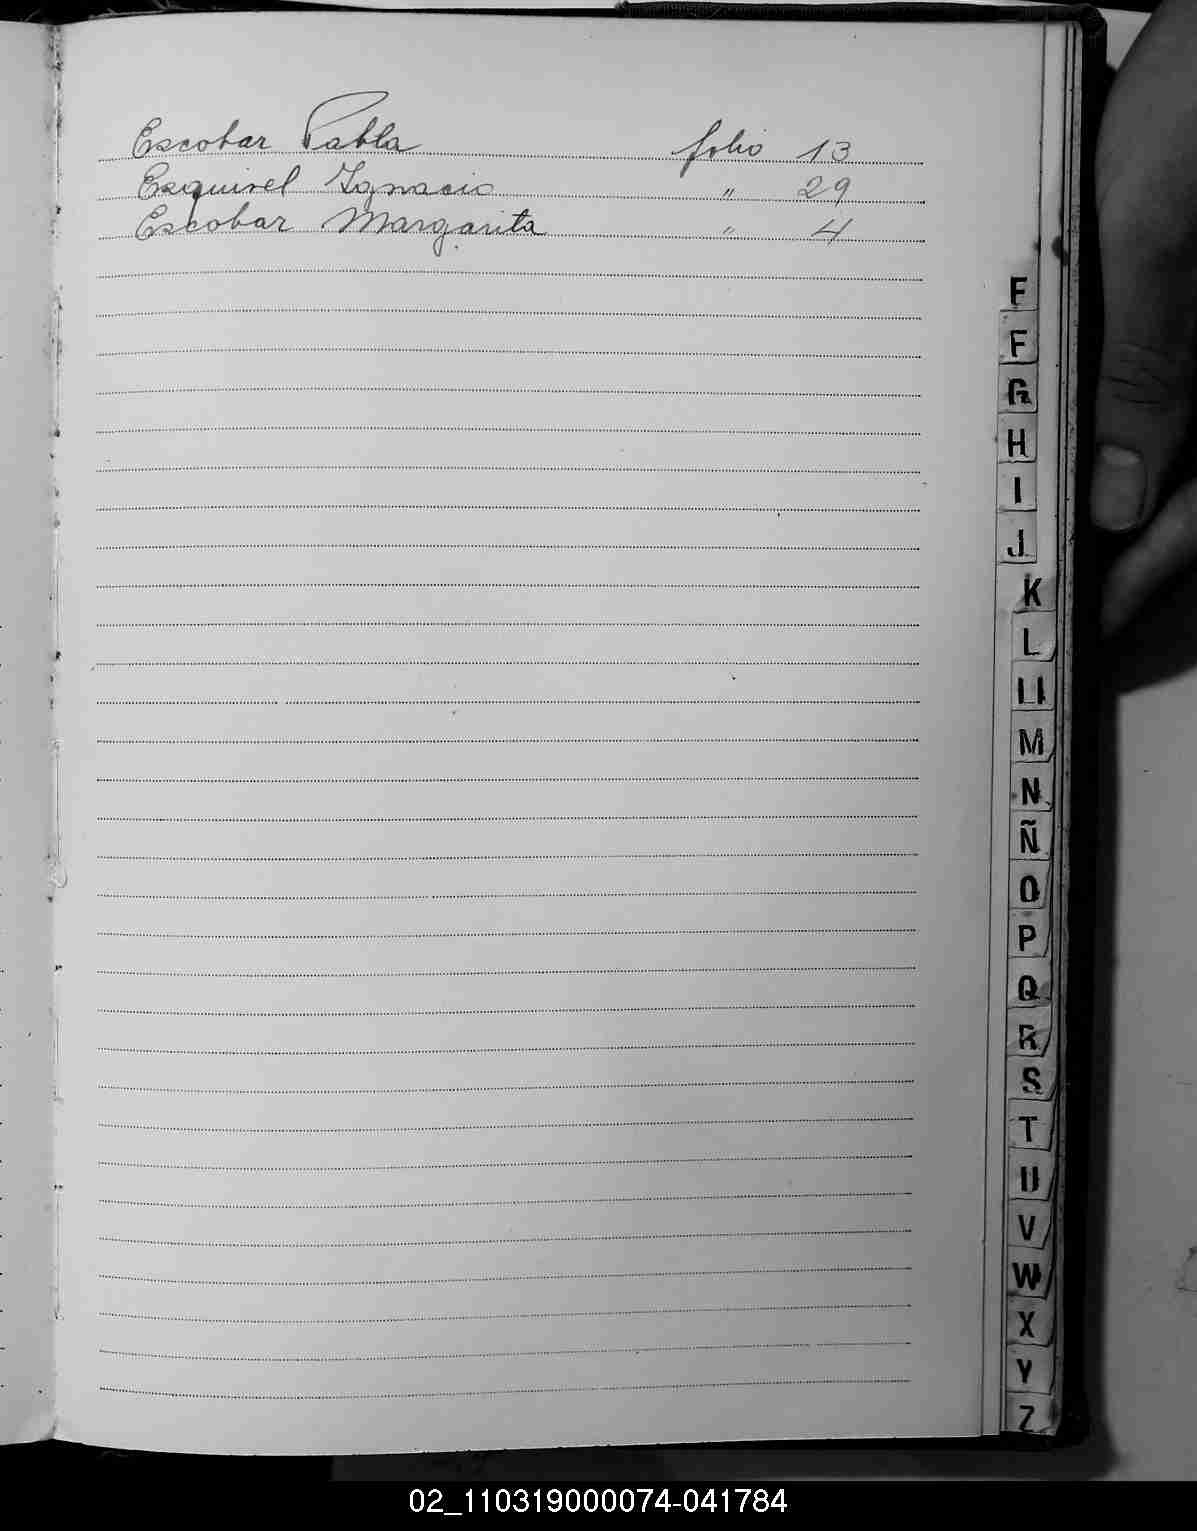 Escobar Pabla folio 13
Esquivel Ignacio " 29
Escobar Margarita " 4
E
F
G
H
I
J
K
L
Ll
M
N
Ñ
O
P
Q
R
S
T
U
V
W
X
Y
Z
02_110319000074-041784